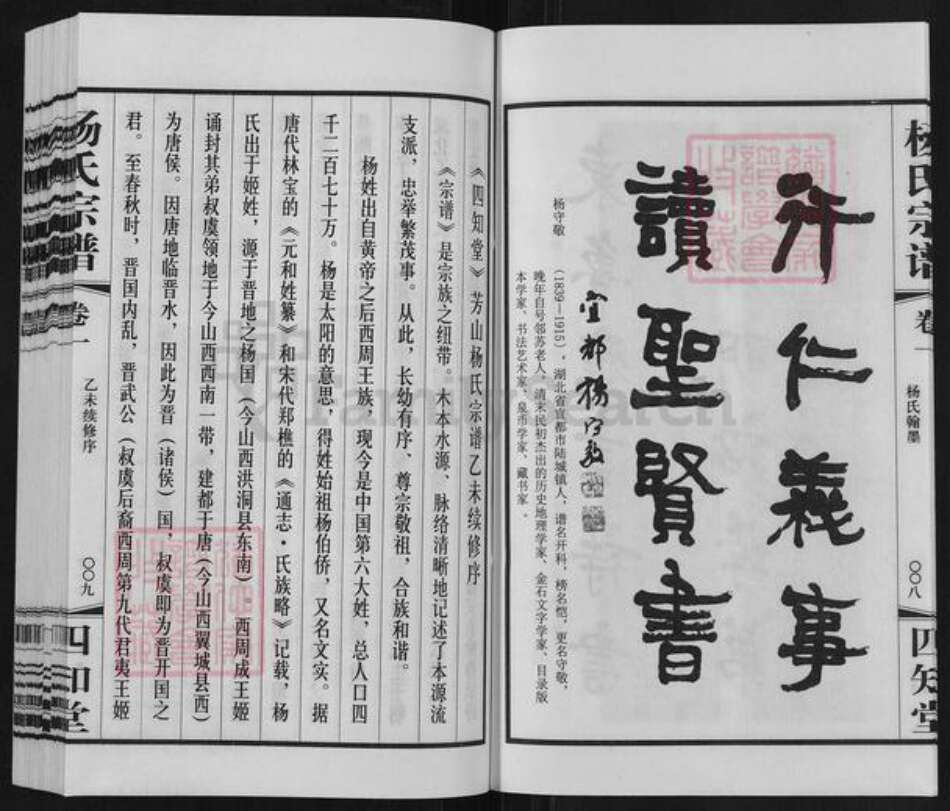 杨氏宗谱
卷一
杨氏翰墨
〇〇八
四知堂
行仁义事
讀聖賢書
宜都杨守敬
杨守敬
(1839-1915)，湖北省宜都市陆城镇人，谱名开科，榜名恺，更名守敬，
晚年自号邻苏老人，清末民初杰出的历史地理学家、金石文字学家、目录版
本学家、书法艺术家、泉币学家、藏书家。
《四知堂》芳山杨氏宗谱乙未续修序
《宗谱》是宗族之纽带。木本水源、脉络清晰地记述了本源流
支派，忠举繁茂事。从此，长幼有序、尊宗敬祖，合族和谐。
杨姓出自黄帝之后西周王族，现今是中国第六大姓，总人口四
千二百七十万。杨是太阳的意思，得姓始祖杨伯侨，又名文实。据
唐代林宝的《元和姓纂》和宋代郑樵的《通志·氏族略》记载，杨
氏出于姬姓，源于晋地之杨国（今山西洪洞县东南）。西周成王姬
诵封其弟叔虞领地于今山西西南一带，建都于唐（今山西翼城县西）
为唐侯。因唐地临晋水，因此为晋（诸侯）国，叔虞即为晋开国之
君。至春秋时，晋国内乱，晋武公（叔虞后裔西周第九代君夷王姬
杨氏宗谱
卷一
乙未续修序
〇〇九
四知堂